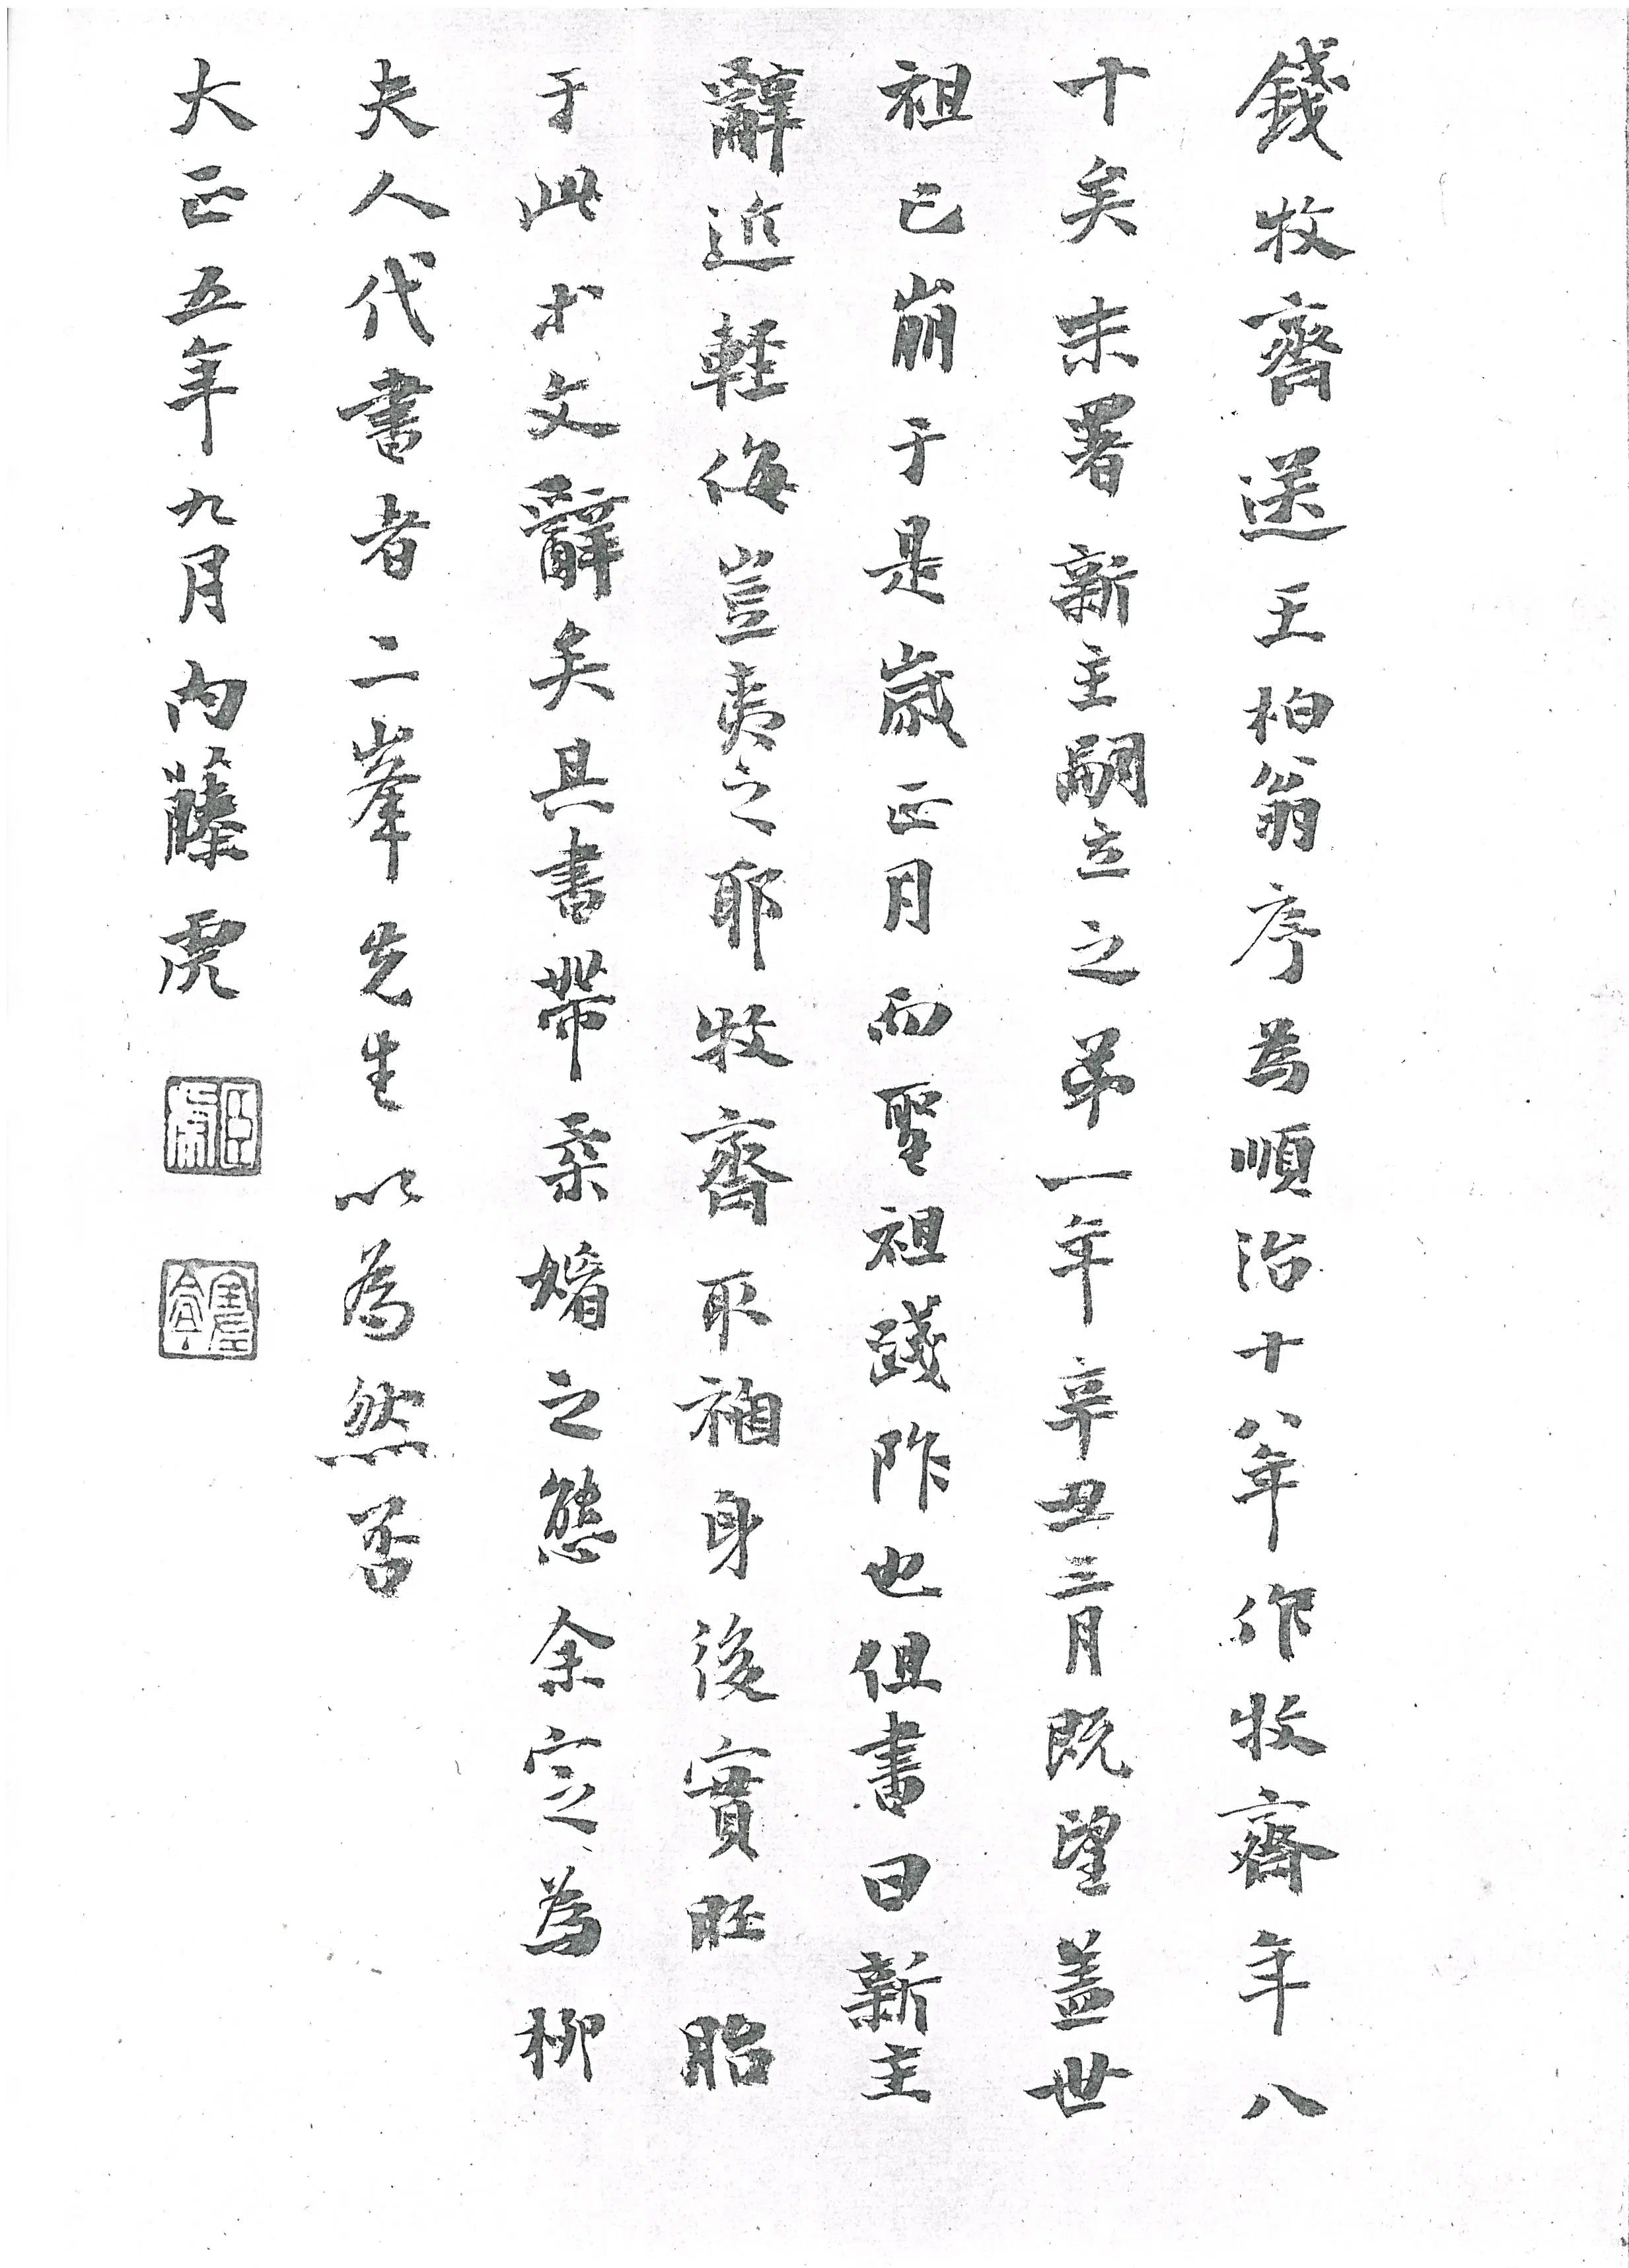 錢牧齋送王柏翁序為順治十八年作牧齋年八
十矣末署新主嗣立之弟一年辛丑三月既望蓋世
祖已崩于是歲正月而聖祖踐阼也但書曰新主
辭近輕侮豈夷之耶牧齋取禍身後實胚胎
于此尗文辭矣具書帶柔媚之態余定為柳
夫人代書者二峯先生以為然否
大正五年九月內藤虎
臣虎